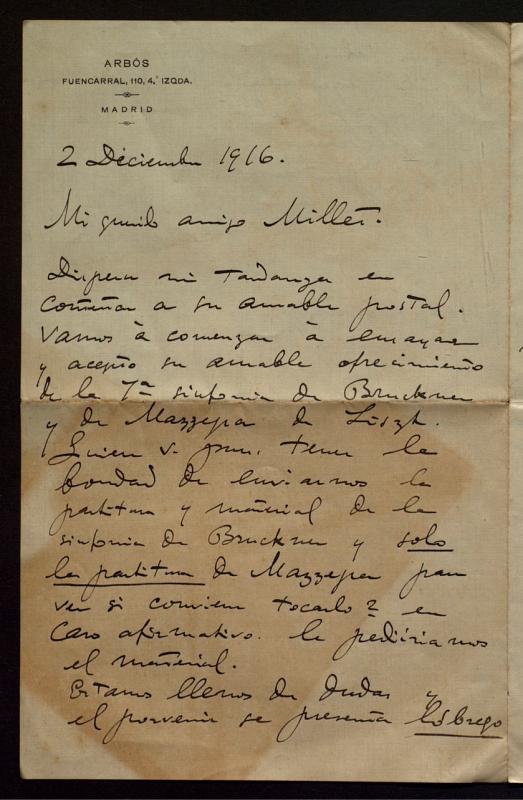 ARBÓS
FUENCARRAL, 110, 4.° IZQDA.
MADRID
2 Diciembre 1916.
Mi querido amigo Millet.
Dispense mi tardanza en
contestar a su amable postal.
Vamos à comenzar à ensayar
y acepto su amable ofrecimiento
de la 7ª sinfonia de Bruckner
y de Mazzepa de Liszt.
Quiere v. pues, tener la
bondad de enviarnos la
partitura y material de la
sinfonia de Bruckner y solo
la partitura de Mazzepa para
ver si conviene tocarlo? en
caso afirmativo. le pediriamos
el material.
Estamos llenos de dudas y
el porvenir se presenta lóbrego